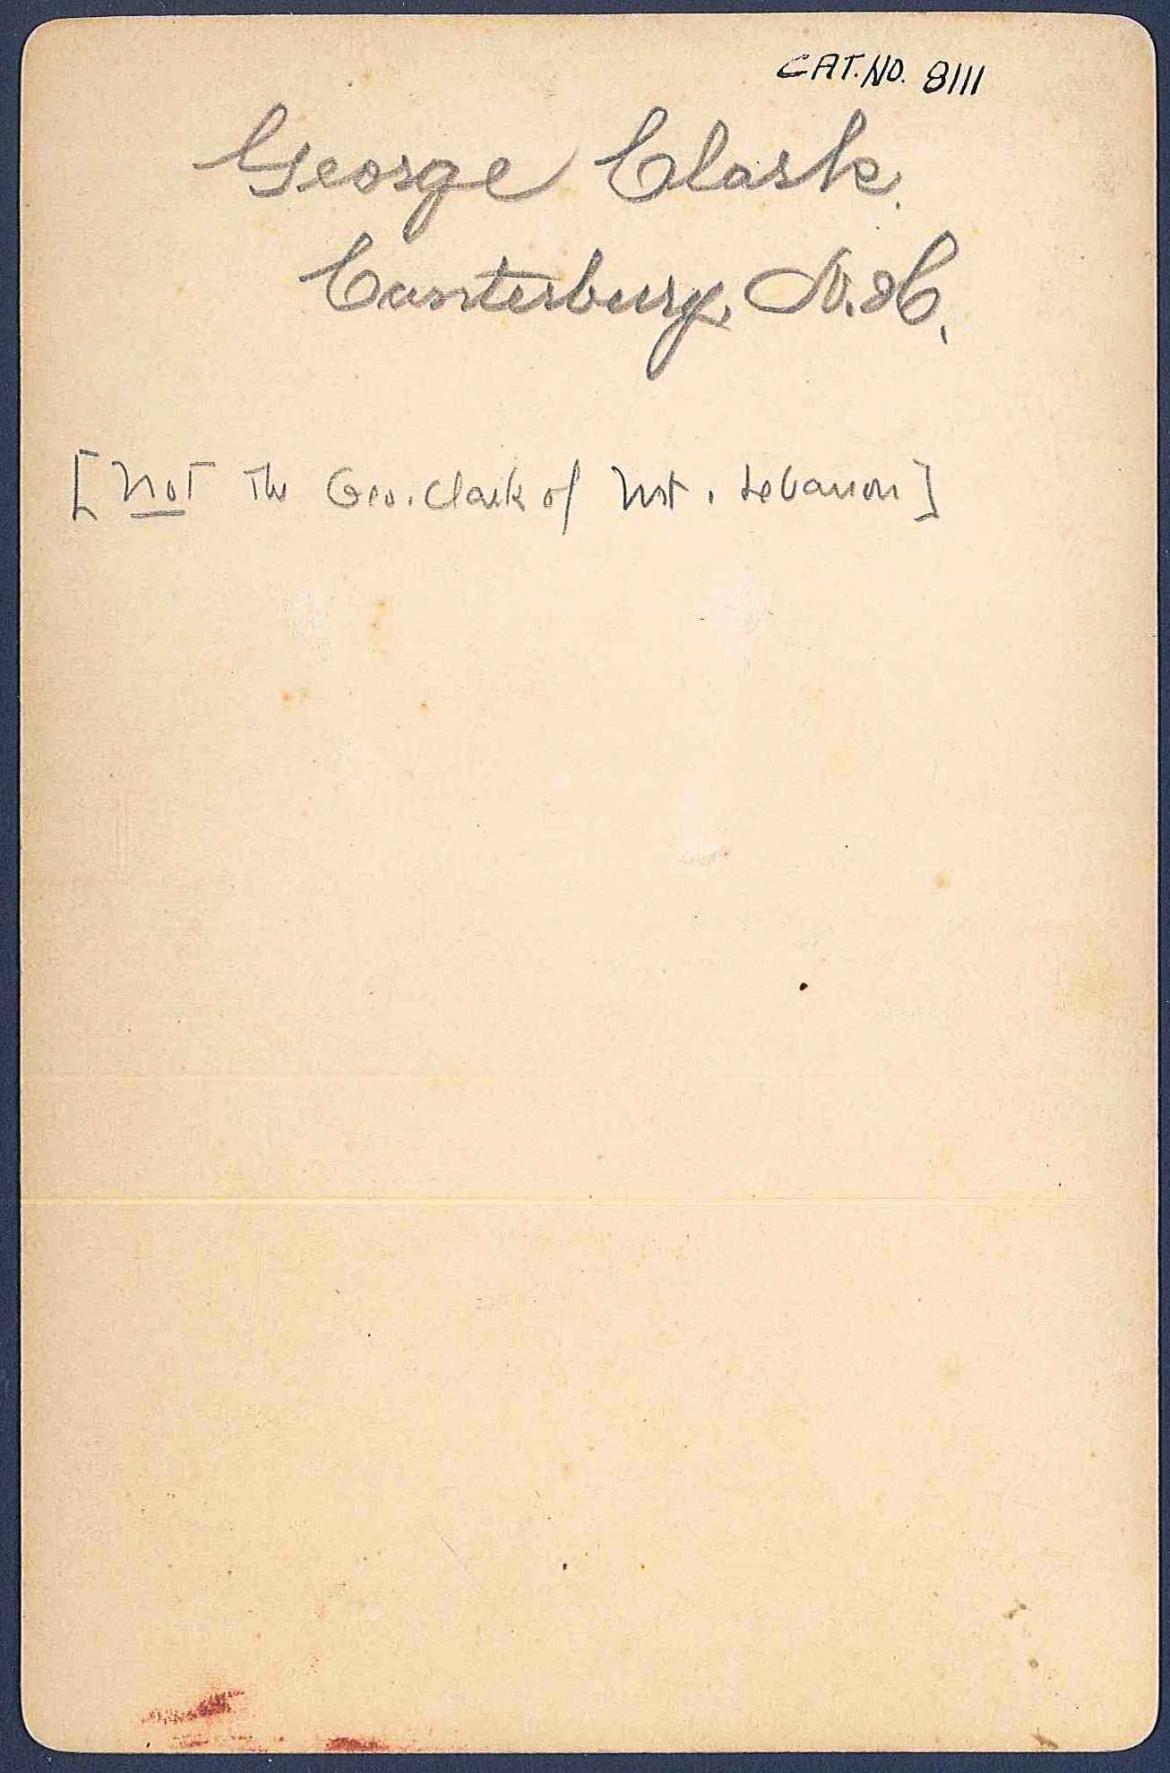 CAT. NO. 8111
George Clark.
Canterbury, N.H.
[Not The Geo. Clark of Mt. Lebanon]